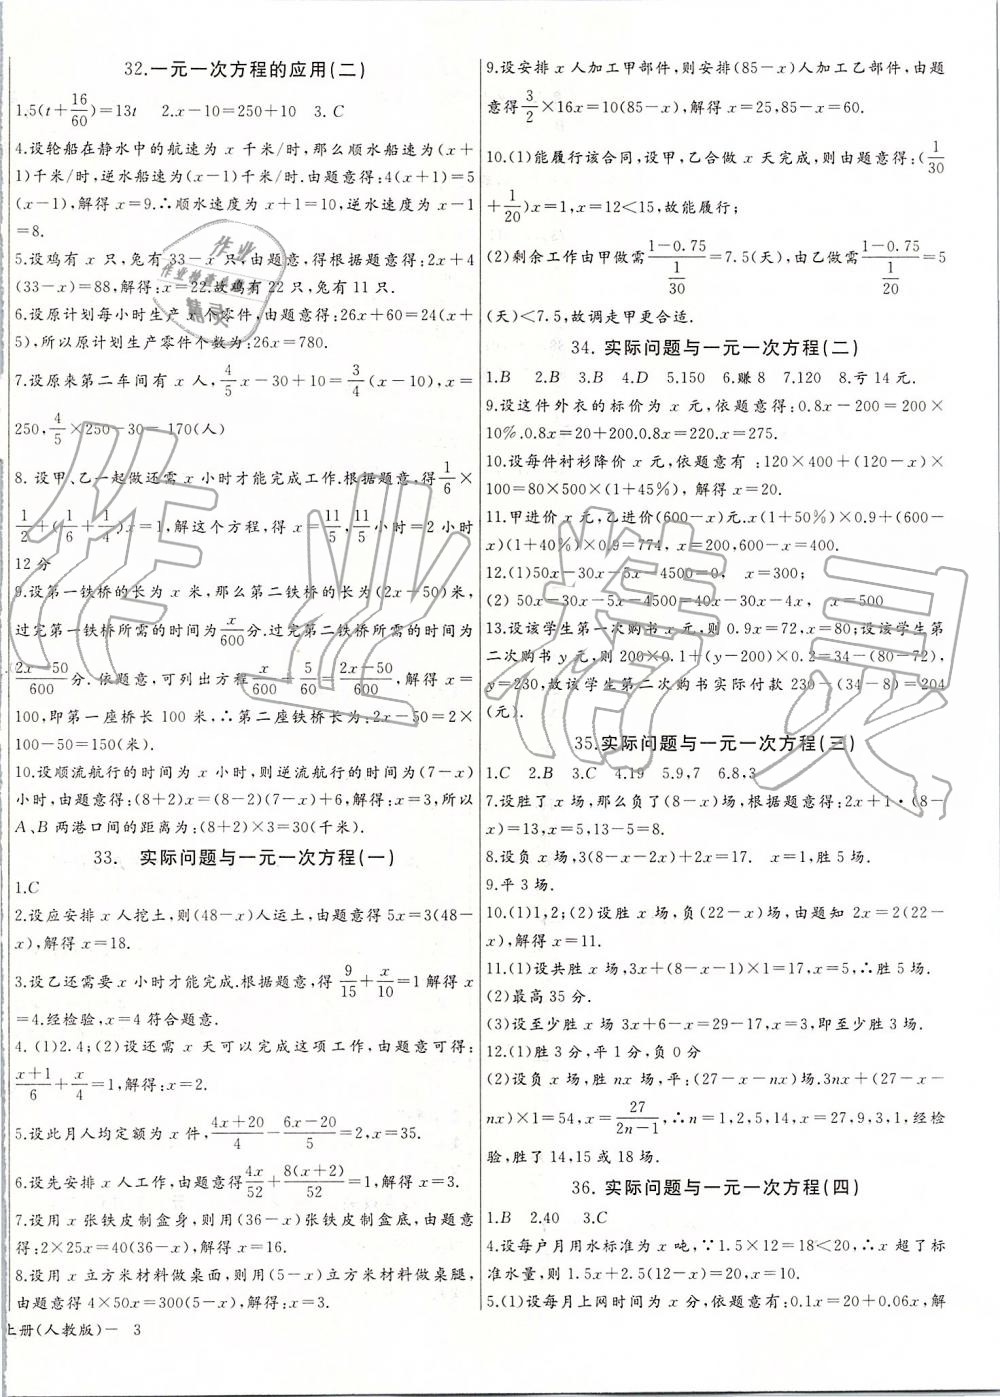 32.一元一次方程的应用(二)
1.5(t+16/60)=13t 2.x-10=250+10 3.C
4.设轮船在静水中的航速为 x 千米/时,那么顺水船速为(x+
1)千米/时,逆水船速为(x-1)千米/时.由题意得:4(x+1)=5
(x-1),解得 x=9.∴顺水速度为 x+1=10,逆水速度为 x-1
=8.
5.设鸡有 x 只,兔有 33-x 只,由题意,得根据题意得:2x+4
(33-x)=88,解得:x=22.故鸡有 22 只,兔有 11 只.
6.设原计划每小时生产 x 个零件,由题意得:26x+60=24(x+
5),所以原计划生产零件个数为:26x=780.
7.设原来第二车间有 x 人,4/5x-30+10=3/4(x-10),x=
250,4/5×250-30=170(人)
8. 设甲、乙一起做还需 x 小时才能完成工作.根据题意,得1/6×
1/2+(1/6+1/4)x=1,解这个方程,得 x=11/5,11/5小时=2 小时
12分
9.设第一铁桥的长为 x 米,那么第二铁桥的长为(2x-50)米,
过完第一铁桥所需的时间为x/600分.过完第二铁桥所需的时间为
2x-50/600分.依题意,可列出方程x/600+5/60=2x-50/600,解得 x=
100,即第一座桥长 100 米.∴第二座铁桥长为:2x-50=2×
100-50=150(米).
10.设顺流航行的时间为 x 小时,则逆流航行的时间为(7-x)
小时,由题意得:(8+2)x=(8-2)(7-x)+6,解得:x=3,所以
A、B 两港口间的距离为:(8+2)×3=30(千米).
33. 实际问题与一元一次方程(一)
1.C
2.设应安排 x 人挖土,则(48-x)人运土,由题意得 5x=3(48-
x),解得 x=18.
3.设乙还需要 x 小时才能完成.根据题意,得 9/15+x/10=1解得 x
=4.经检验,x=4 符合题意.
4. (1)2.4;(2)设还需 x 天可以完成这项工作,由题意可得:
x+1/6+x/4=1,解得:x=2.
5.设此月人均定额为 x 件,4x+20/4-6x-20/5=2,x=35.
6.设先安排 x 人工作,由题意得4x/52+8(x+2)/52=1,解得:x=3.
7.设用 x 张铁皮制盒身,则用(36-x)张铁皮制盒底,由题意
得:2×25x=40(36-x),解得:x=16.
8.设用 x 立方米材料做桌面,则用(5-x)立方米材料做桌腿,
由题意得 4×50x=300(5-x),解得:x=3.
上册(人教版)— 3
9.设安排 x 人加工甲部件,则安排(85-x)人加工乙部件,由题
意得3/2×16x=10(85-x),解得 x=25,85-x=60.
10.(1)能履行该合同,设甲,乙合做 x 天完成,则由题意得:(1/30
+1/20)x=1,x=12<15,故能履行;
(2)剩余工作由甲做需1-0.75/1/30=7.5(天),由乙做需1-0.75/1/20=5
(天)<7.5,故调走甲更合适.
34. 实际问题与一元一次方程(二)
1.B 2.B 3.B 4.D 5.150 6.赚8 7.120 8.亏14元.
9.设这件外衣的标价为 x 元,依题意得:0.8x-200=200×
10%.0.8x=20+200.0.8x=220.x=275.
10.设每件衬衫降价 x 元,依题意有:120×400+(120-x)×
100=80×500×(1+45%),解得 x=20.
11.甲进价 x 元,乙进价(600-x)元.x(1+50%)×0.9+(600-
x)(1+40%)×0.9=774,x=400,600-x=400.
12.(1)50x-30x-5x-4500=0, x=300;
(2) 50x-30x-5x-4500=40x-30x-4x, x=500
13.设该学生第一次购书 x 元,则 0.9x=72,x=80;设该学生第
二次购书 y 元,则 200×0.1+(y-200)×0.2=34-(80-72),
y=230,故该学生第二次购书实际付款 230-(34-8)=204
(元).
35.实际问题与一元一次方程(三)
1.C 2.B 3.C 4.19 5.9,7 6.8,3
7.设胜了 x 场,那么负了(8-x)场,根据题意得:2x+1·(8-
x)=13,x=5,13-5=8.
8.设负 x 场,3(8-x-2)+2x=17. x=1,胜 5 场.
9.平 3 场.
10.(1)1,2;(2)设胜 x 场,负(22-x)场,由题知 2x=2(22-
x),解得:x=11.
11.(1)设共胜 x 场,3x+(8-x-1)×1=17,x=5,∴胜 5 场.
(2)最高 35 分.
(3)设至少胜 x 场 3x+6-x=29-17,x=3,即至少胜 3 场.
12.(1)胜 3 分,平 1 分,负 0 分
(2)设负 x 场,胜 nx 场,平:(27-x-nx)场.3nx+(27-x-
nx)×1=54,x=27/2n-1,∴n=1,2,5,14,x=27,9,3,1,经检
验,胜了 14,15 或 18 场.
36. 实际问题与一元一次方程(四)
1.B 2.40 3.C
4.设每户月用水标准为 x 吨,∵1.5×12=18<20,∴x 超了标
准水量,则 1.5x+2.5(12-x)=20,x=10.
5.(1)设每月上网时间为 x 分,依题意有:0.1x=20+0.06x,解
作业精灵